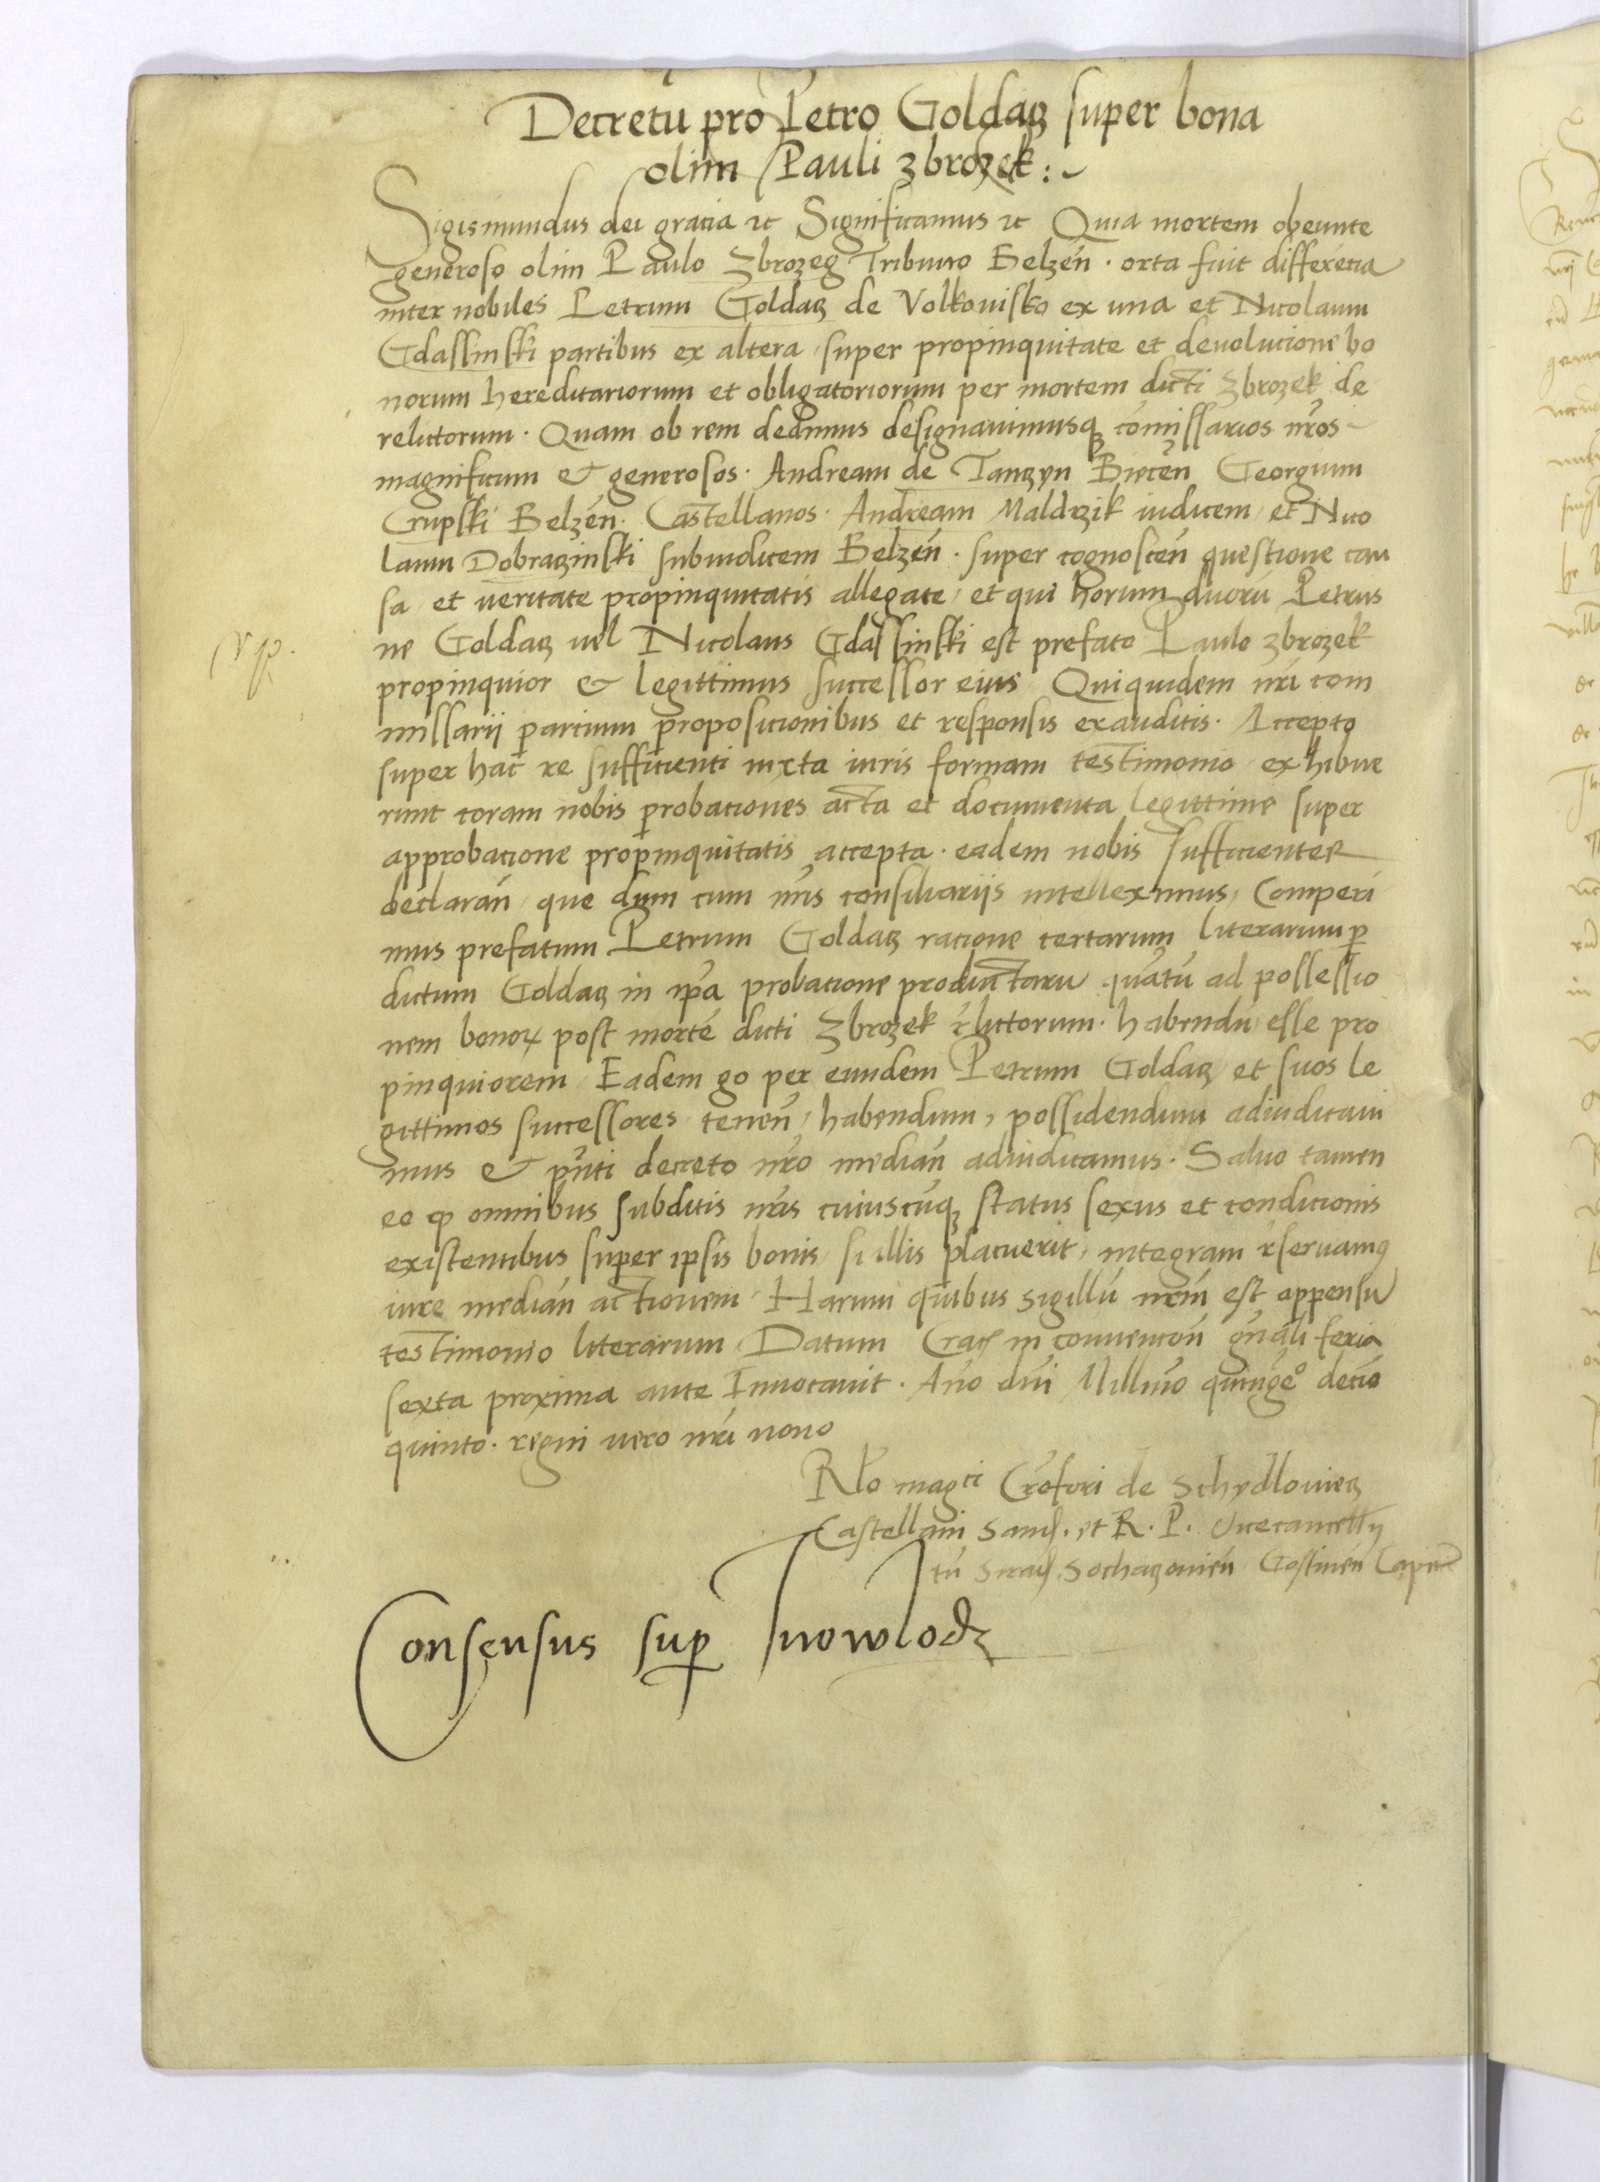 Decretu pro Petro Goldacz super bona
olim Pauli zbrozek :~
Sigismundus dei gracia ꝛc Significamus ꝛc Quia mortem obeunte
generoso olim Paulo Zbrozeg Tribuno Belzen̄ . orta fuit differēcia
inter nobiles Petrum Goldacz de Volkovisko ex una et Nicolaum
Gdassinski partibus ex altera super propinquitate et devolucione bo
norum hereditariorum et obligatoriorum per mortem dicti Zbrozek de
relictorum . Quam ob rem dedimus designavimusqꝫ comissarios nr̄os
magnificum & generosos . Andream de Tanczyn Biecen̄ Georgium
Crupski Belzen̄ . Castellanos . Andream Maldrzik iudicem et Nico
laum Dobraczinski subiudicem Belzen̄ . super cognoscen̄ questione cau
sa et veritate propinquitatis allegate et qui horum duorū Petrus
ne Goldacz vel Nicolaus Gdassinski est prefato Paulo zbrozek
propinquior & legittimus successor eius Quiquidem nr̄i com
missarii parcium proposicionibus et responsis exauditis . Accepto
super hac re sufficienti iuxta iuris formam testimonio exhibue
runt coram nobis probaciones acta et documenta legittime super
approbacione propinquitatis accepta . eadem nobis sufficienter
declaran̄ que dum cum nr̄is consiliariis intelleximus, Comperi
mus prefatum Petrum Goldacz racione certarum literarum ꝑ
dictum Goldacz in ipa probacione productaru quātū ad possessio
nem bonoꝝ post mortē dicti Zbrozek r̄lictorum . habendū esse pro
pinquiorem Eadem go per eundem Petrum Goldacz et suos le
gittimos successores tenen̄, habendum, possidendum adiudicavi
mus & pn̄ti decreto nr̄o median̄ adiudicamus . Salvo tamen
eo ꝙ omnibus subditis nr̄is cuiuscūqꝫ status sexus et condicionis
existentibus super ipsis bonis si illis placuerit, integram r̄servamꝰ
iure median̄ actionem . Harum quibus sigillū nr̄m est appensu
testimonio literarum Datum Crac̄ in convencōn gn̄ali feria
sexta proxima ante Invocavit . Anō dn̄i Millm̄o quinge° decio
quinto . regni vero nr̄i nono
Rlo magci Cr̄ofori de Schydloviecz
Castellani Sand̄ . et R . P . vicecancellarij
Sirad̄ . Sochaczovien̄ Gostinen̄ Capit
Consensus suꝑ Inowlodz